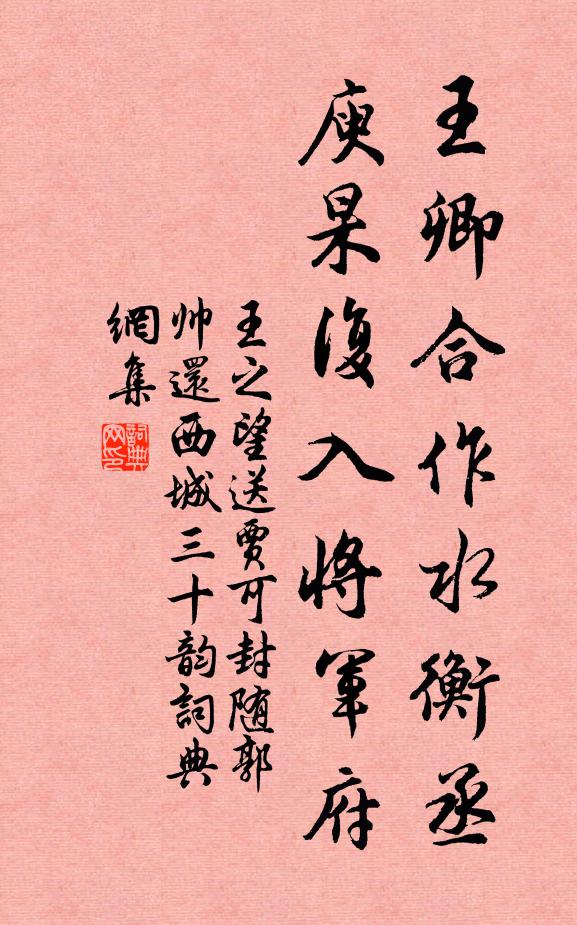 王卿合作水衡丞
庾杲復入將軍府
王之望送賈可封随郭
帅還西城三十韵詞典
網集
詞典網印